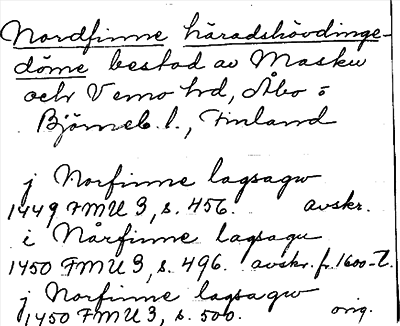 Nordfinne häradshövdinge-
döme bestod av Masku
och Vemo hd, Åbo o
Björneb. l., Finland
j Norfinne lagsagw
1449 FMU 3, s. 456. avskr.
i Nårfinne lagsagu
1450 FMU 3, s. 496. avskr. fr. 1600-t.
j Norfinne lagsagw
1450 FMU 3, s. 500. orig.